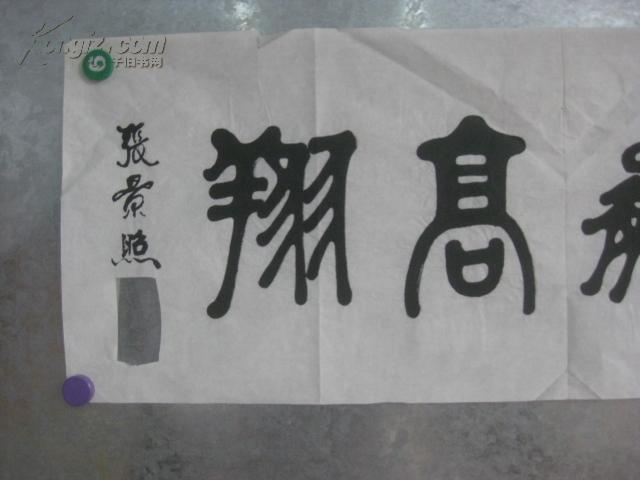 高翔
張景照
Kongfz.com
孔子旧书网